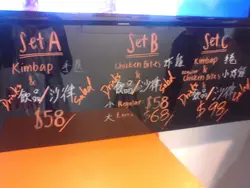 Set A
Kimbap
&
Drinks 飲品/沙律 Salad
$58
Set B
Chicken Bites
&
Drinks 飲品/沙律 Salad
小 Regular $58
大 $68
Set C
Kimbap
&
Chicken Bites
Drinks 飲品/沙律 Salad
$98